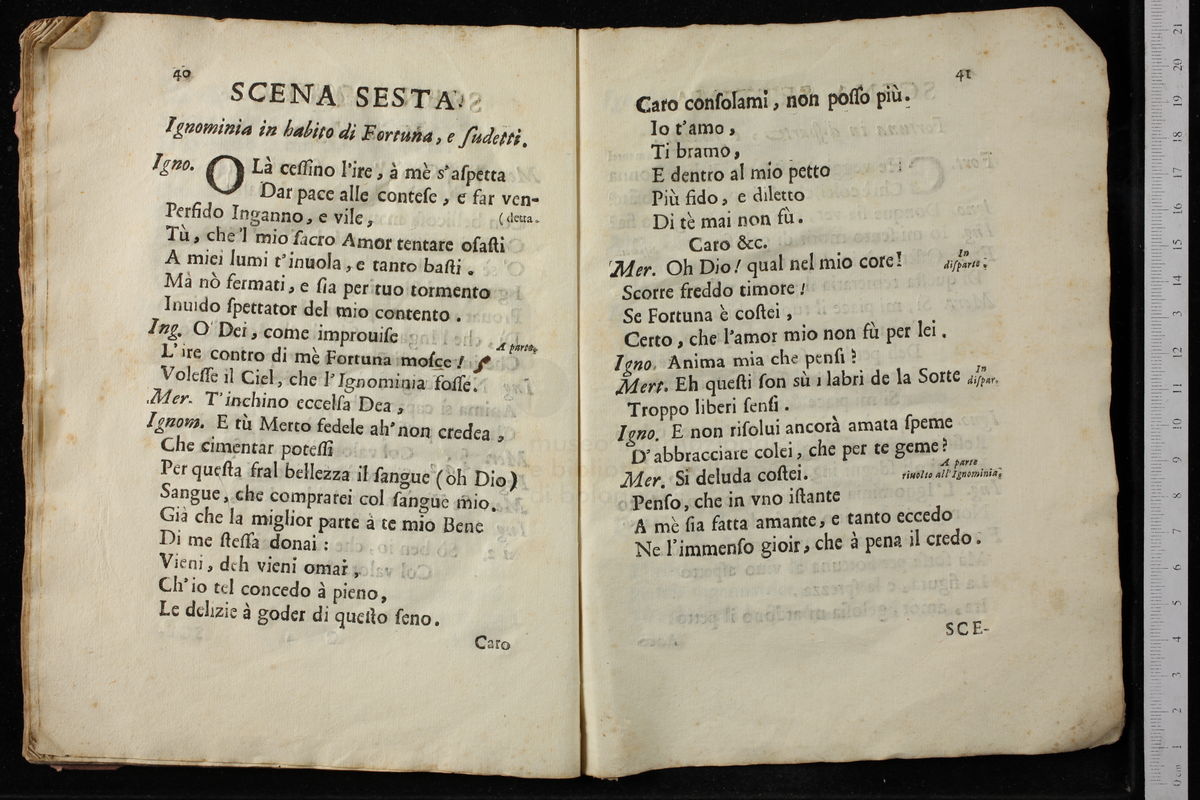 40
SCENA SESTA.
Ignominia in habito di Fortuna, e ſudetti.
Igno. OLà ceſſino l'ire, à mè s'aſpetta
Dar pace alle conteſe, e far ven-
Perfido Inganno, e vile, (detta.
Tù, che'l mio ſacro Amor tentare oſaſti
A miei lumi t'inuola, e tanto baſti.
Mà nò fermati, e ſia per tuo tormento
Inuido ſpettator del mio contento.
Ing. O Dei, come improuiſe
A parte.
L'ire contro di mè Fortuna moſce!
Voleſſe il Ciel, che l'Ignominia foſſe.
Mer. T'inchino eccelſa Dea,
Ignom. E tù Merto fedele ah' non credea,
Che cimentar poteſſi
Per queſta fral bellezza il ſangue (òh Dio)
Sangue, che comprarei col ſangue mio.
Già che la miglior parte à te mio Bene
Di me ſteſſa donai:
Vieni, deh vieni omai,
Ch'io tel concedo à pieno,
Le delizie à goder di queſto ſeno.
Caro
41
Caro conſolami, non poſſo più.
Io t'amo,
Ti bramo,
E dentro al mio petto
Più fido, e diletto
Di tè mai non fù.
Caro &c.
Mer. Oh Dio! qual nel mio core! In
diſparte.
Scorre freddo timore!
Se Fortuna è coſtei,
Certo, che l'amor mio non fù per lei.
Igno. Anima mia che penſi?
Mert. Eh queſti ſon sù i labri de la Sorte In
diſpar.
Troppo liberi ſenſi.
Igno. E non riſolui ancorà amata ſpeme
D'abbracciare colei, che per te geme?
Mer. Si deluda coſtei. A parte
riuolto all'Ignominia.
Penſo, che in vno iſtante
A mè ſia fatta amante, e tanto eccedo
Ne l'immenſo gioir, che à pena il credo.
SCE-